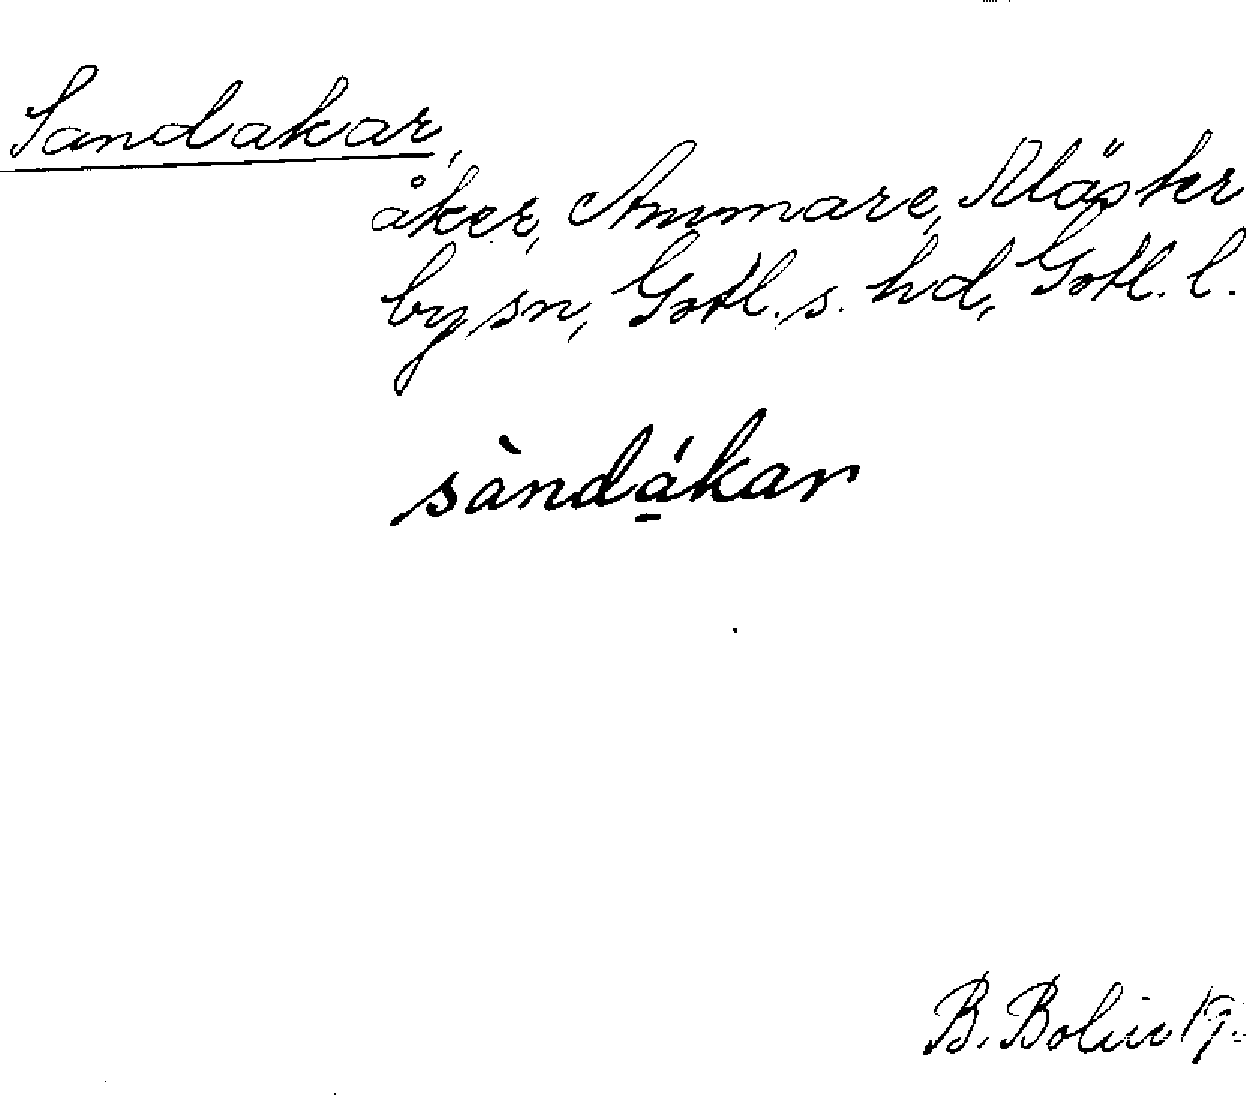 Sandakar,
åker, Ammare, Kläster
by sn, Gotl. s. hd, Gotl. l.
sàndá̱kar
B. Bolin 19